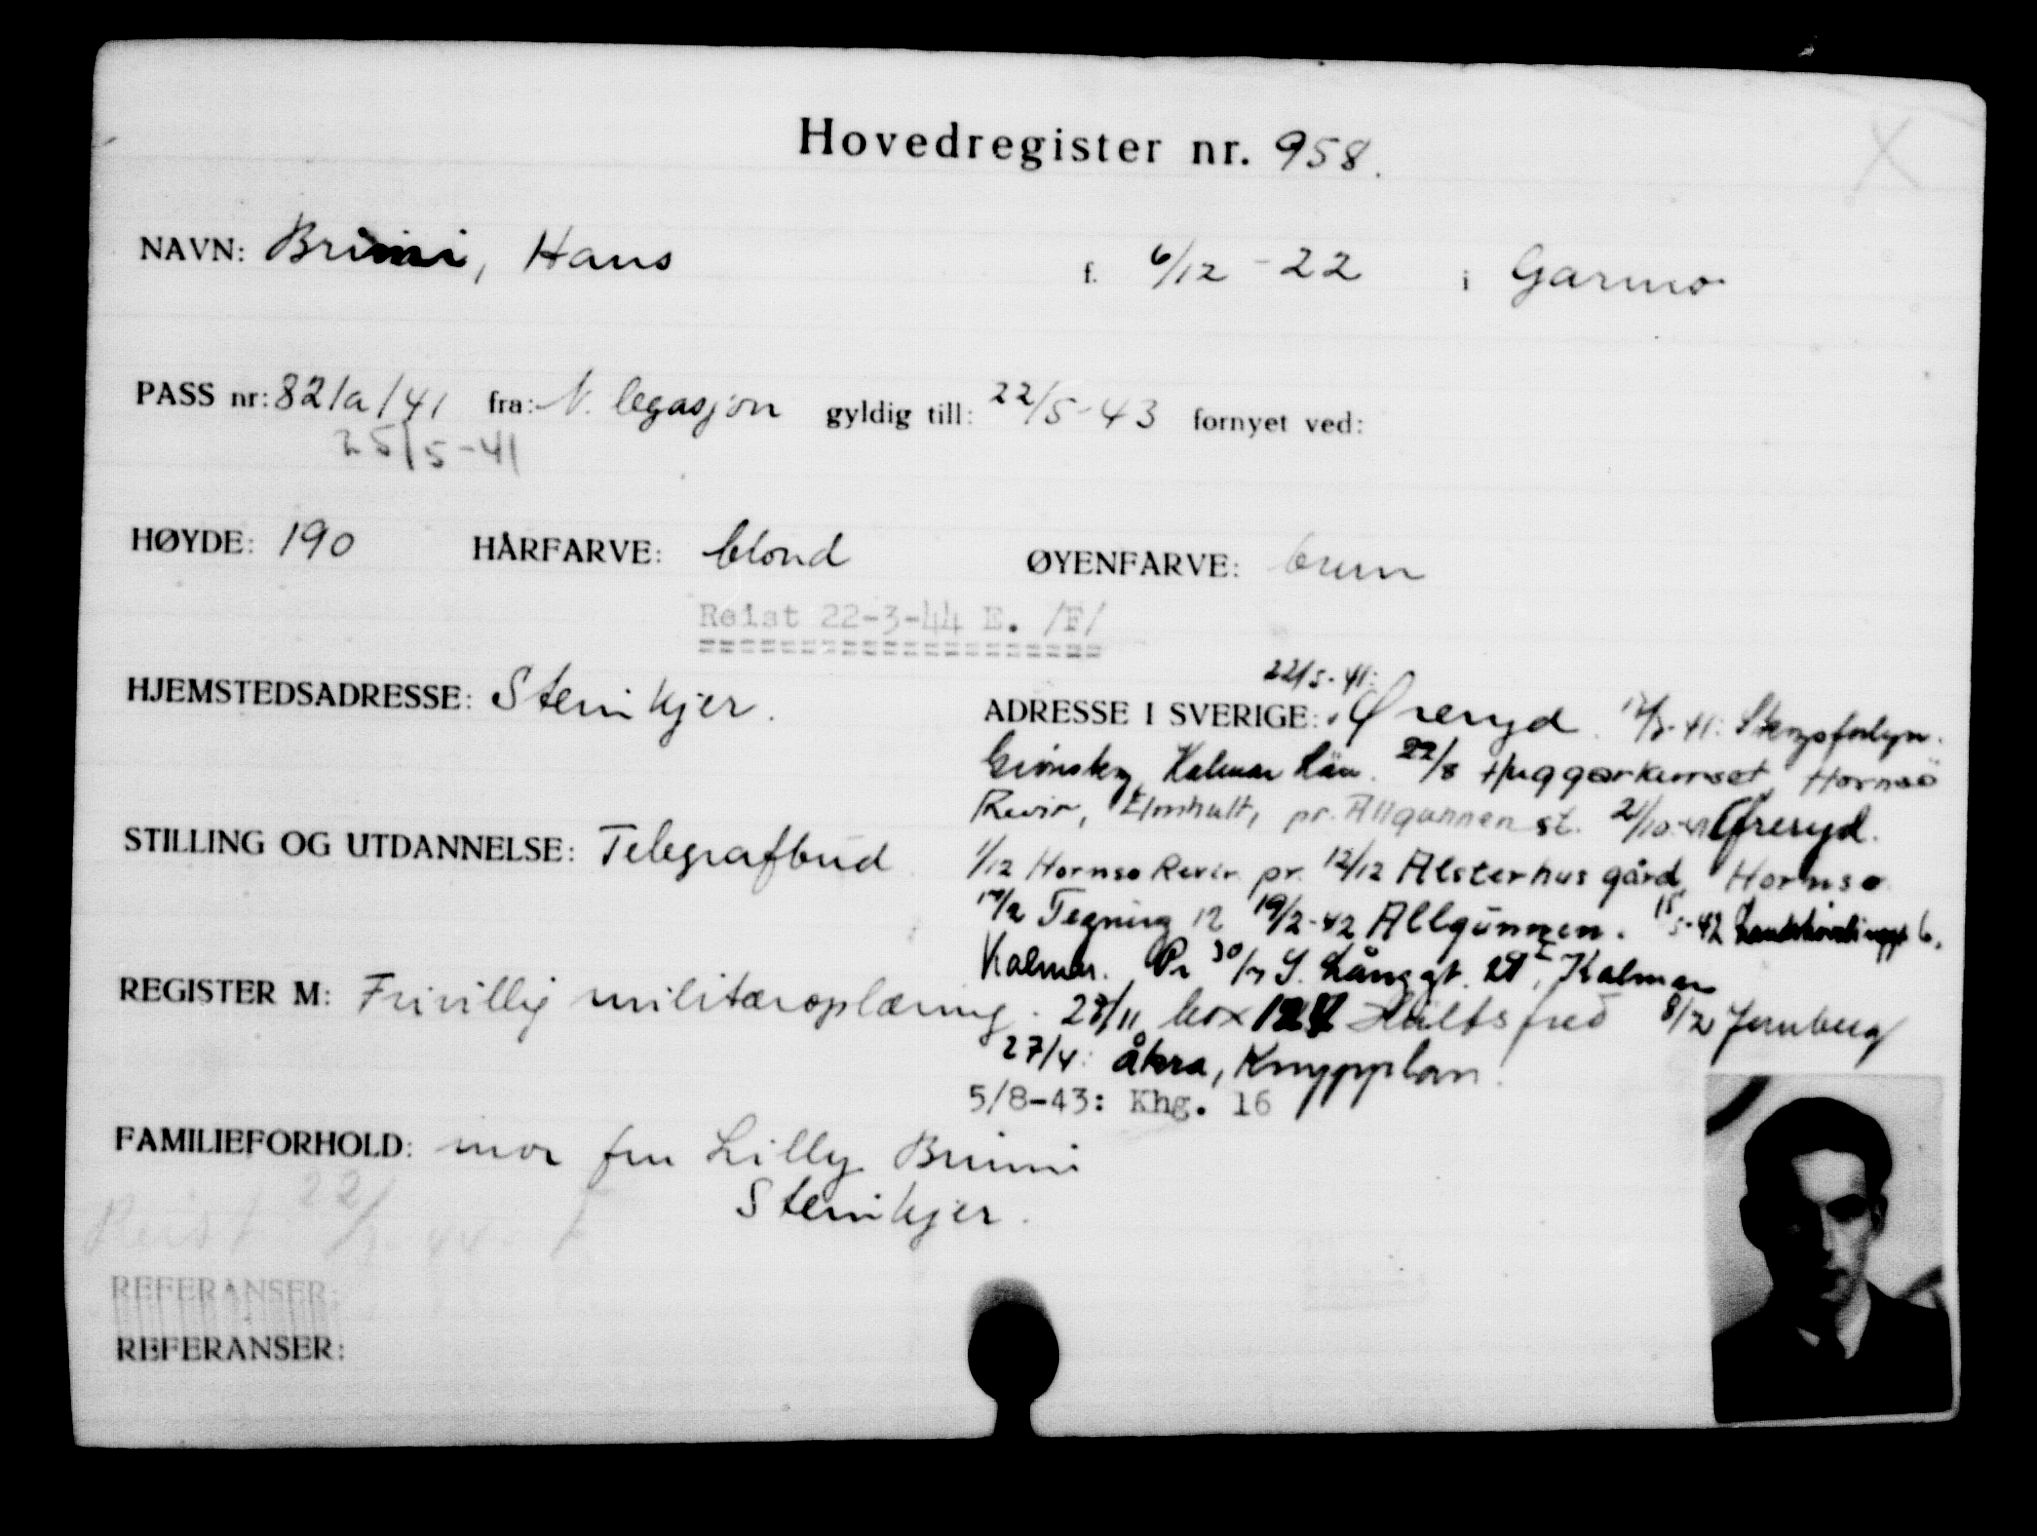 Hovedregister nr. 958.
NAVN: Brimi, Hans f. 6/12 - 22 i Garmo
PASS nr: 82/a/41 fra: N. legasjon gyldig till: 22/5-43 fornyet ved:
25/5-41
HØYDE: 190 HÅRFARVE: blond ØYENFARVE: brun
Reist 22-3-44 E. /F/
22/5-41:
HJEMSTEDSADRESSE: Steinkjer. ADRESSE I SVERIGE: Øreryd.
Kalmar Län. 22/8 Huggarkurset, Hornsö
Revir, Elmhult, pr. Allgunnen st. 21/10-41 Øreryd.
STILLING OG UTDANNELSE: Telegrafbud
1/12 Hornsø Revir pr. 12/12 Alsterhus gård, Hornsø
Tegning 12 19/2-42 Allgunnen. 15/5-42
Kalmar. Pr 30/7 S. Långgt. Kalmar
REGISTER M: Frivillig militæroplæring. 27/11 box Hultsfred 8/2 Jernberg
27/4: Åkra, Knypplan.
5/8-43: Khg. 16
FAMILIEFORHOLD: mor fru Lilly Brimi
Steinkjer.
Reist 22/3-44 F
REFERANSER:
REFERANSER: